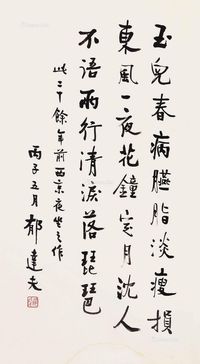 玉兒春病臙脂淡瘦損
東風一夜花鐘定月沈人
不語兩行清淚落琵琶
此二十餘年前西京夜坐之作
丙子五月 郁達夫